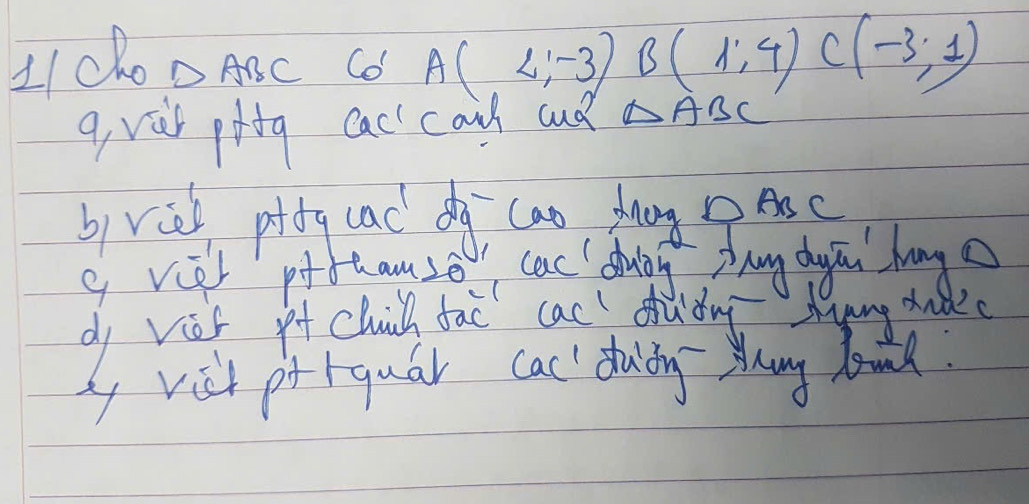 1/ Cho △ ABC có A( 2;-3) B( 1;4) C(-3;1)
a, viết pttq các cạnh của △ ABC
b, viết pttq các đg cao trong △ ABC
c, viết pt tham số các đường trung tuyến trong △
d, viết pt chính tắc các đường trung trực
e, viết pt t quát các đường trung bình.